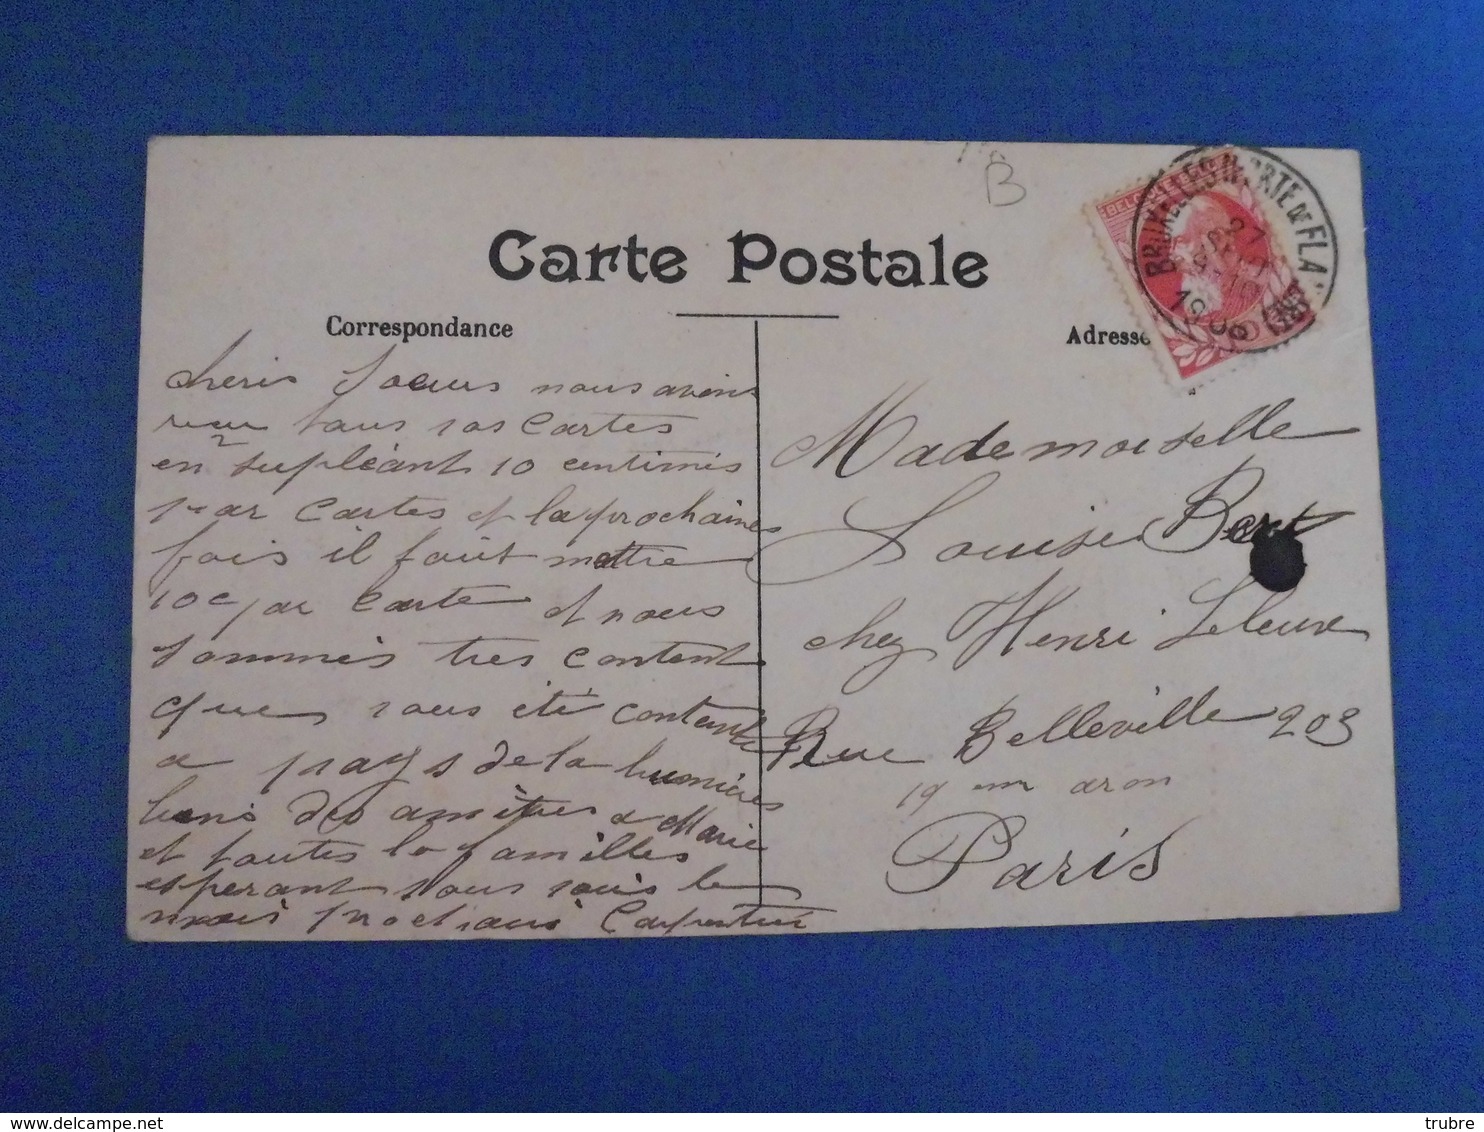 B
Carte Postale
Correspondance
Adresse
BELGIQUE
BRUXELLES PORTE DE FLA
27
1908
cheris Soeurs nous avons
recu tous vos Cartes
en supléant 10 centimes
par Cartes et la prochaines
fois il faut mettre
10c par Carte et nous
sommes tres content
que vous été contente
a pays de la lumières
biens des amitiés a Marie
et toutes la familles
esperant vous voir le
mois prochains Carpentier
Mademoiselle
Louise Bert
chez Henri Leleux
Rue Belleville 203
19 em aron
Paris
trubre